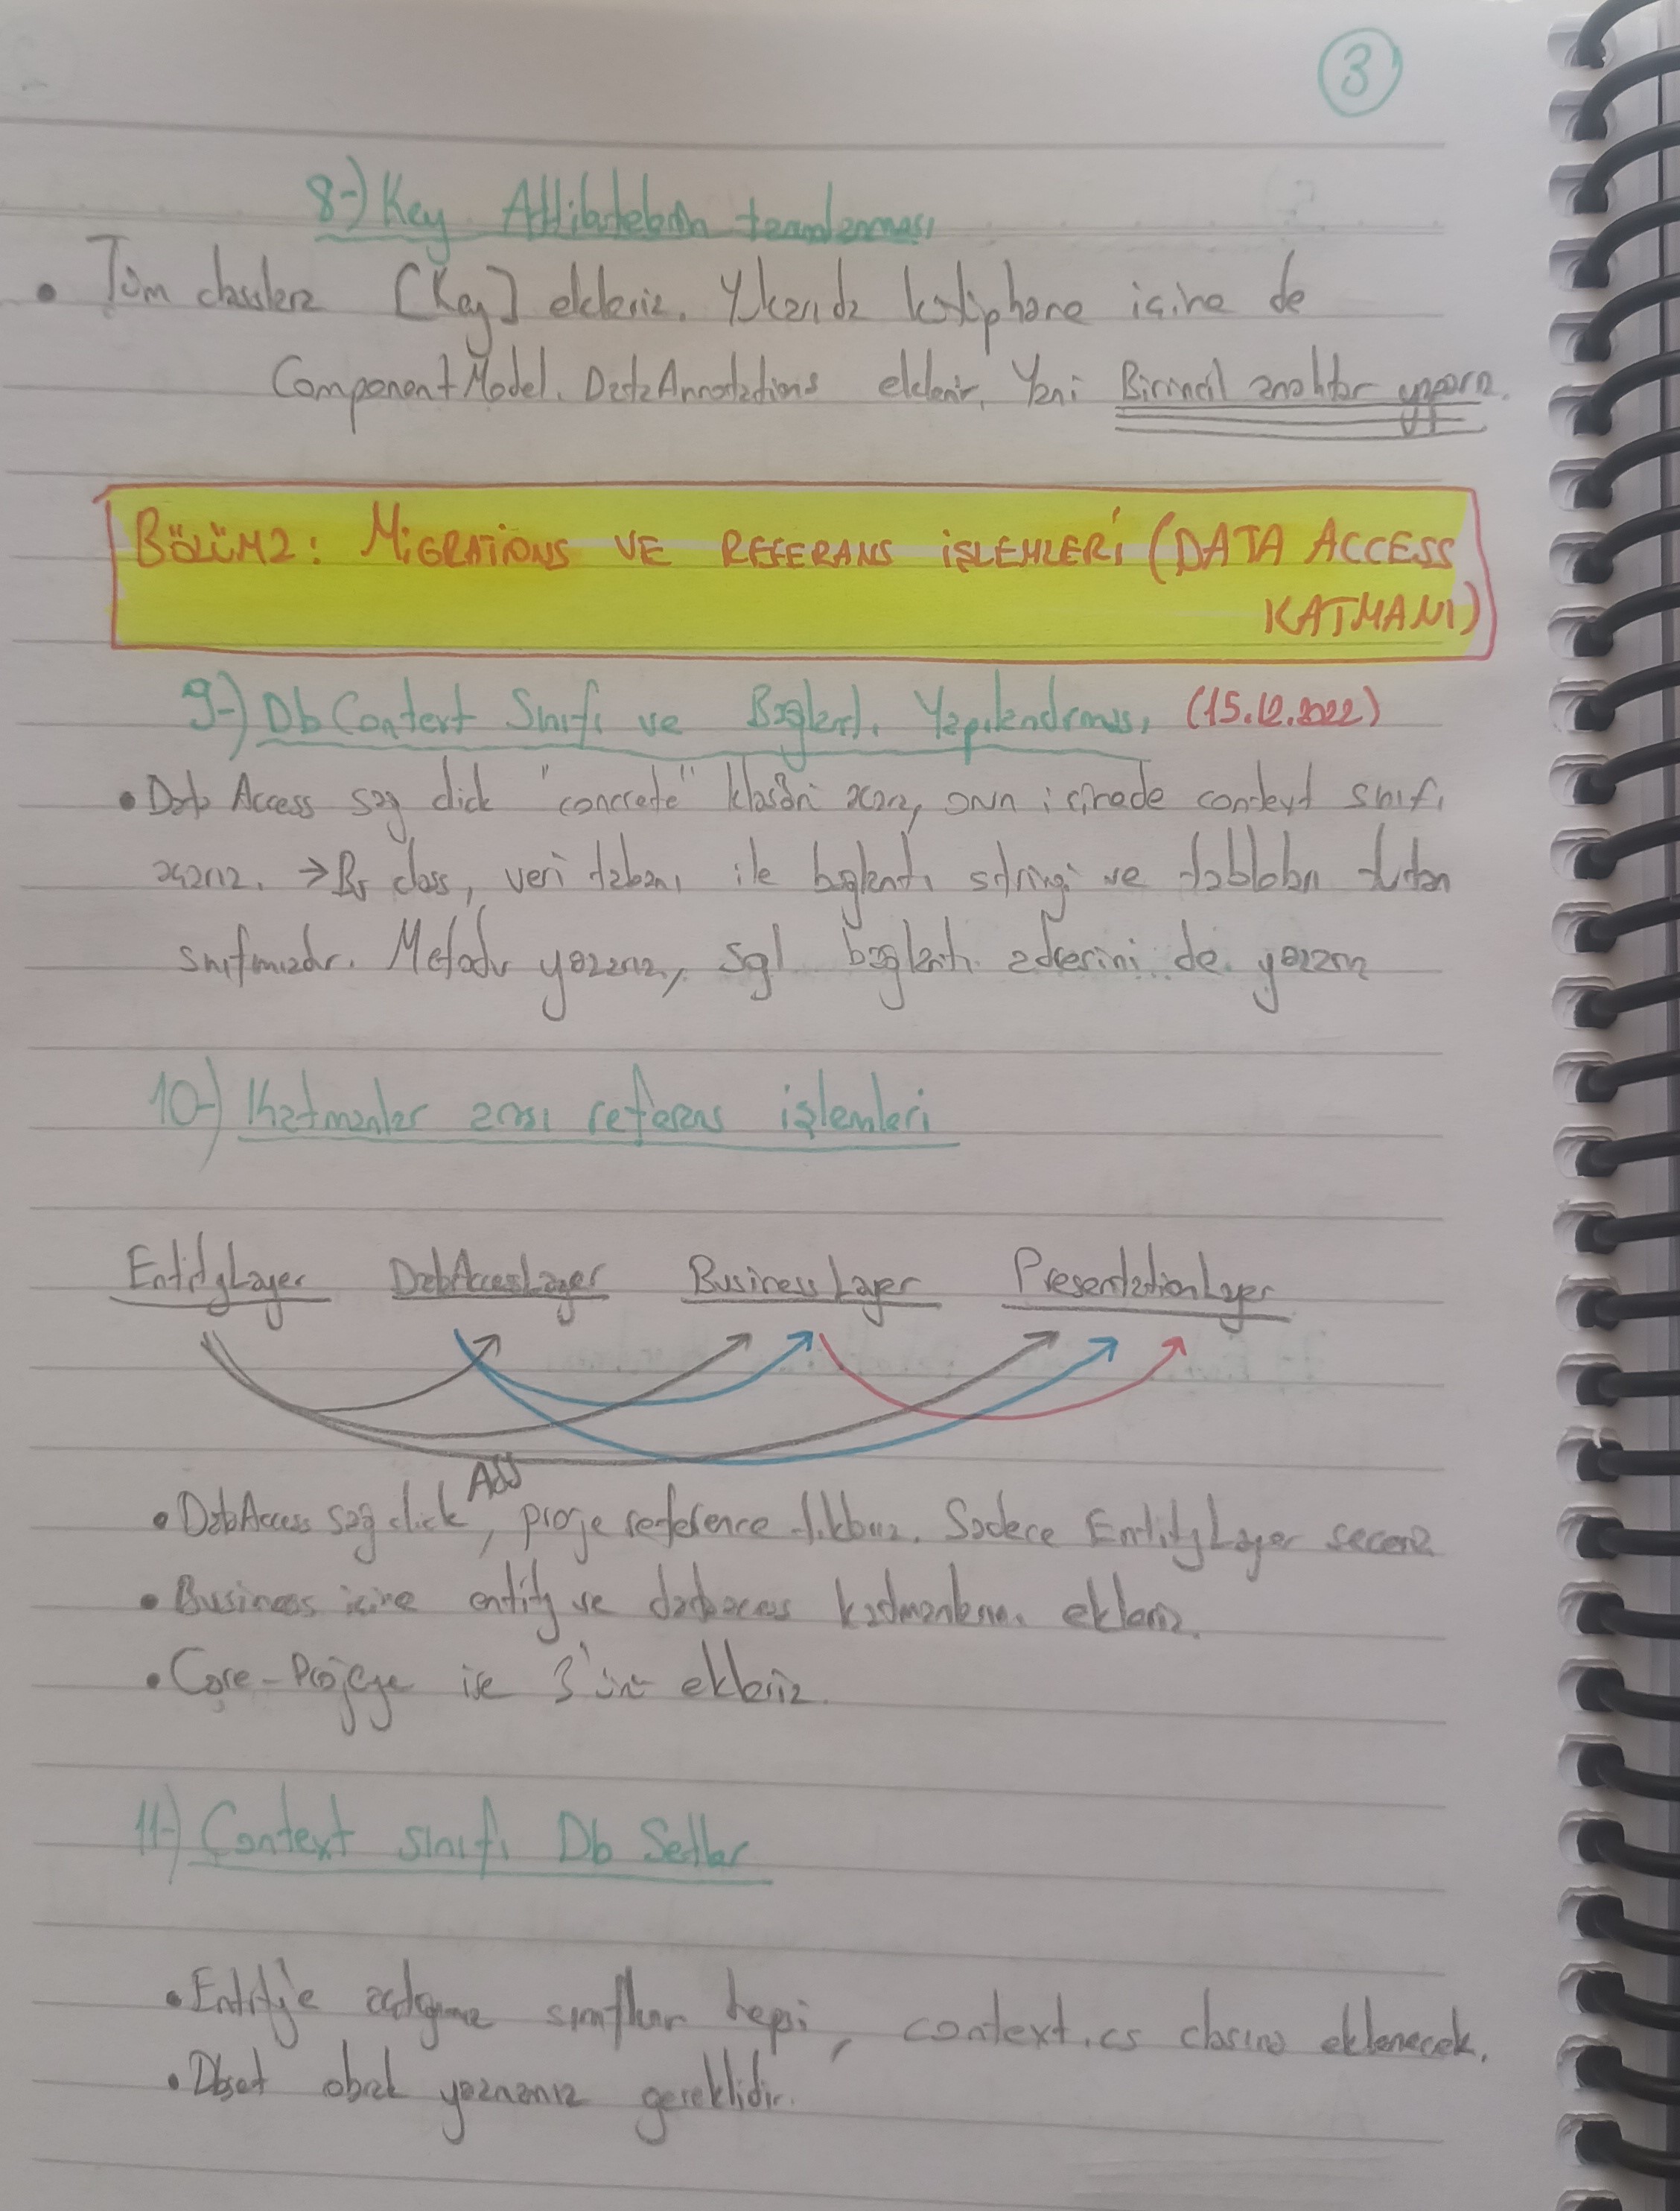 3
8-) Key Attibutelerin tanımlanması
• Tüm classlara [Key] ekleriz. Yukarıda kütüphane içine de
ComponentModel.DataAnnotations eklenir. Yani Birincil anahtar yaparız.
BÖLÜM2: MİGRATİONS VE REFERANS İŞLEMLERİ (DATA ACCESS
KATMANI)
9-) DbContext Sınıfı ve Bağlantı Yapılandırması (15.12.2022)
• Data Access sağ click "concrete" klasörü açarız, onun içinede context sınıfı
açarız. → Bu class, veri tabanı ile bağlantı stringi ve tabloları tutan
sınıfımızdır. Metodu yazarız, sql bağlantı adresini de yazarız
10-) Katmanlar arası referans işlemleri
EntityLayer DataAccesLayer BusinessLayer PresentationLayer
Add
• DataAccess sağ click, proje reference tıklarız. Sadece EntityLayer seceriz
• Business içine entity ve dataacces katmanlarını ekleriz.
• Core-Projeye ise 3'ünü ekleriz.
11-) Context sınıfı Db Setler
• Entity'e açtığımız sınıfların hepsi, context.cs classına eklenecek.
• Dbset olarak yazmamız gereklidir.